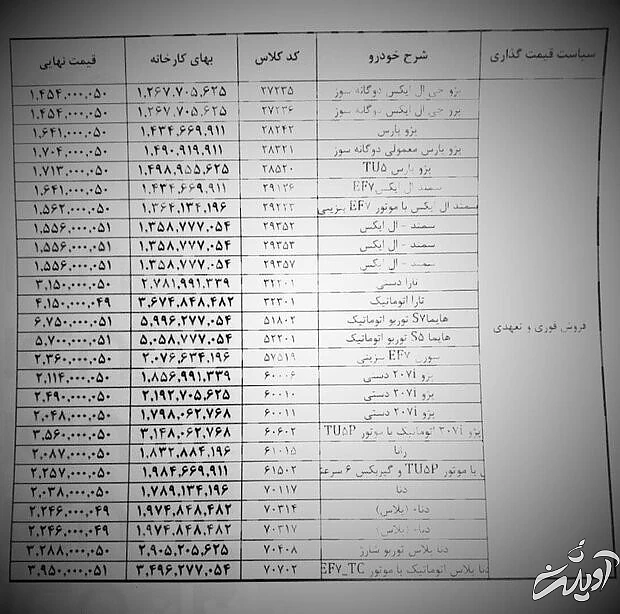 سیاست قیمت گذاری شرح خودرو کد کلاس بهای کارخانه قیمت نهایی
پژو جی ال ایکس دوگانه سوز ۲۷۲۳۵ ۱،۲۶۷،۷۰۵،۶۲۵ ۱،۴۵۴،۰۰۰،۰۵۰
پژو جی ال ایکس دوگانه سوز ۲۷۲۳۶ ۱،۲۶۷،۷۰۵،۶۲۵ ۱،۴۵۴،۰۰۰،۰۵۰
پژو پارس ۲۸۲۴۲ ۱،۴۳۴،۶۶۹،۹۱۱ ۱،۶۴۱،۰۰۰،۰۵۰
پژو پارس معمولی دوگانه سوز ۲۸۳۲۱ ۱،۴۹۰،۹۱۹،۹۱۱ ۱،۷۰۴،۰۰۰،۰۵۰
پژو پارس TU۵ ۲۸۵۲۰ ۱،۴۹۸،۹۵۵،۶۲۵ ۱،۷۱۳،۰۰۰،۰۵۰
سمند ال ایکس EF۷ ۲۹۱۲۶ ۱،۴۳۴،۶۶۹،۹۱۱ ۱،۶۴۱،۰۰۰،۰۵۰
سمند ال ایکس با موتور EF۷ بنزینی ۲۹۲۲۳ ۱،۳۶۴،۱۳۴،۱۹۶ ۱،۵۶۲،۰۰۰،۰۵۰
سمند - ال ایکس ۲۹۳۵۲ ۱،۳۵۸،۷۷۷،۰۵۴ ۱،۵۵۶،۰۰۰،۰۵۱
سمند - ال ایکس ۲۹۳۵۳ ۱،۳۵۸،۷۷۷،۰۵۴ ۱،۵۵۶،۰۰۰،۰۵۱
سمند - ال ایکس ۲۹۳۵۷ ۱،۳۵۸،۷۷۷،۰۵۴ ۱،۵۵۶،۰۰۰،۰۵۱
تارا دستی ۳۲۲۰۱ ۲،۷۸۱،۹۹۱،۳۳۹ ۳،۱۵۰،۰۰۰،۰۵۰
تارا اتوماتیک ۳۲۳۰۱ ۳،۶۷۴،۸۴۸،۴۸۲ ۴،۱۵۰،۰۰۰،۰۴۹
فروش فوری و تعهدی هایما S۷ توربو اتوماتیک ۵۱۸۰۲ ۵،۹۹۶،۲۷۷،۰۵۴ ۶،۷۵۰،۰۰۰،۰۵۱
هایما S۵ توربو اتوماتیک ۵۲۲۰۱ ۵،۰۵۸،۷۷۷،۰۵۴ ۵،۷۰۰،۰۰۰،۰۵۱
سورن EF۷ بنزینی ۵۷۵۱۹ ۲،۰۷۶،۶۳۴،۱۹۶ ۲،۳۶۰،۰۰۰،۰۵۰
پژو ۲۰۷i دستی ۶۰۰۰۶ ۱،۸۵۶،۹۹۱،۳۳۹ ۲،۱۱۴،۰۰۰،۰۵۰
پژو ۲۰۷i دستی ۶۰۰۱۰ ۲،۱۹۲،۷۰۵،۶۲۵ ۲،۴۹۰،۰۰۰،۰۵۰
پژو ۲۰۷i دستی ۶۰۰۱۱ ۱،۷۹۸،۰۶۲،۷۶۸ ۲،۰۴۸،۰۰۰،۰۵۰
پژو ۲۰۷i اتوماتیک با موتور TU۵P ۶۰۶۰۲ ۳،۱۴۸،۰۶۲،۷۶۸ ۳،۵۶۰،۰۰۰،۰۵۰
رانا ۶۱۰۱۵ ۱،۸۳۲،۸۸۴،۱۹۶ ۲،۰۸۷،۰۰۰،۰۵۰
با موتور TU۵P و گیربکس ۶ سرعته ۶۱۵۰۲ ۱،۹۸۴،۶۶۹،۹۱۱ ۲،۲۵۷،۰۰۰،۰۵۰
دنا ۷۰۱۱۷ ۱،۷۸۹،۱۳۴،۱۹۶ ۲،۰۳۸،۰۰۰،۰۵۰
دنا+ (پلاس) ۷۰۳۱۴ ۱،۹۷۴،۸۴۸،۴۸۲ ۲،۲۴۶،۰۰۰،۰۴۹
دنا+ (پلاس) ۷۰۳۱۷ ۱،۹۷۴،۸۴۸،۴۸۲ ۲،۲۴۶،۰۰۰،۰۴۹
دنا پلاس توربو شارژ ۷۰۴۰۸ ۲،۹۰۵،۲۰۵،۶۲۵ ۳،۲۸۸،۰۰۰،۰۵۰
دنا پلاس اتوماتیک با موتور EF۷_TC ۷۰۷۰۲ ۳،۴۹۶،۲۷۷،۰۵۴ ۳،۹۵۰،۰۰۰،۰۵۱